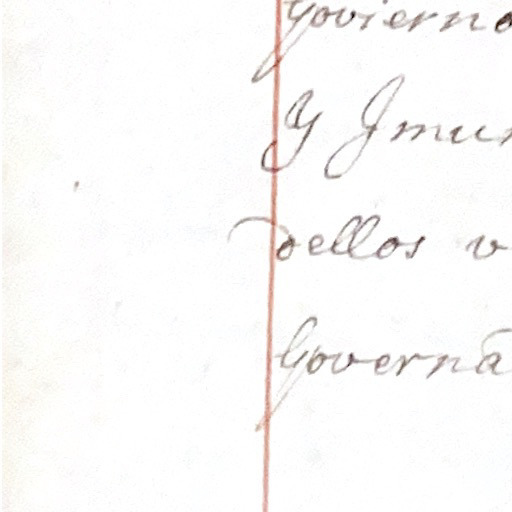 govierno
Y Jmun
dellos v
Governa